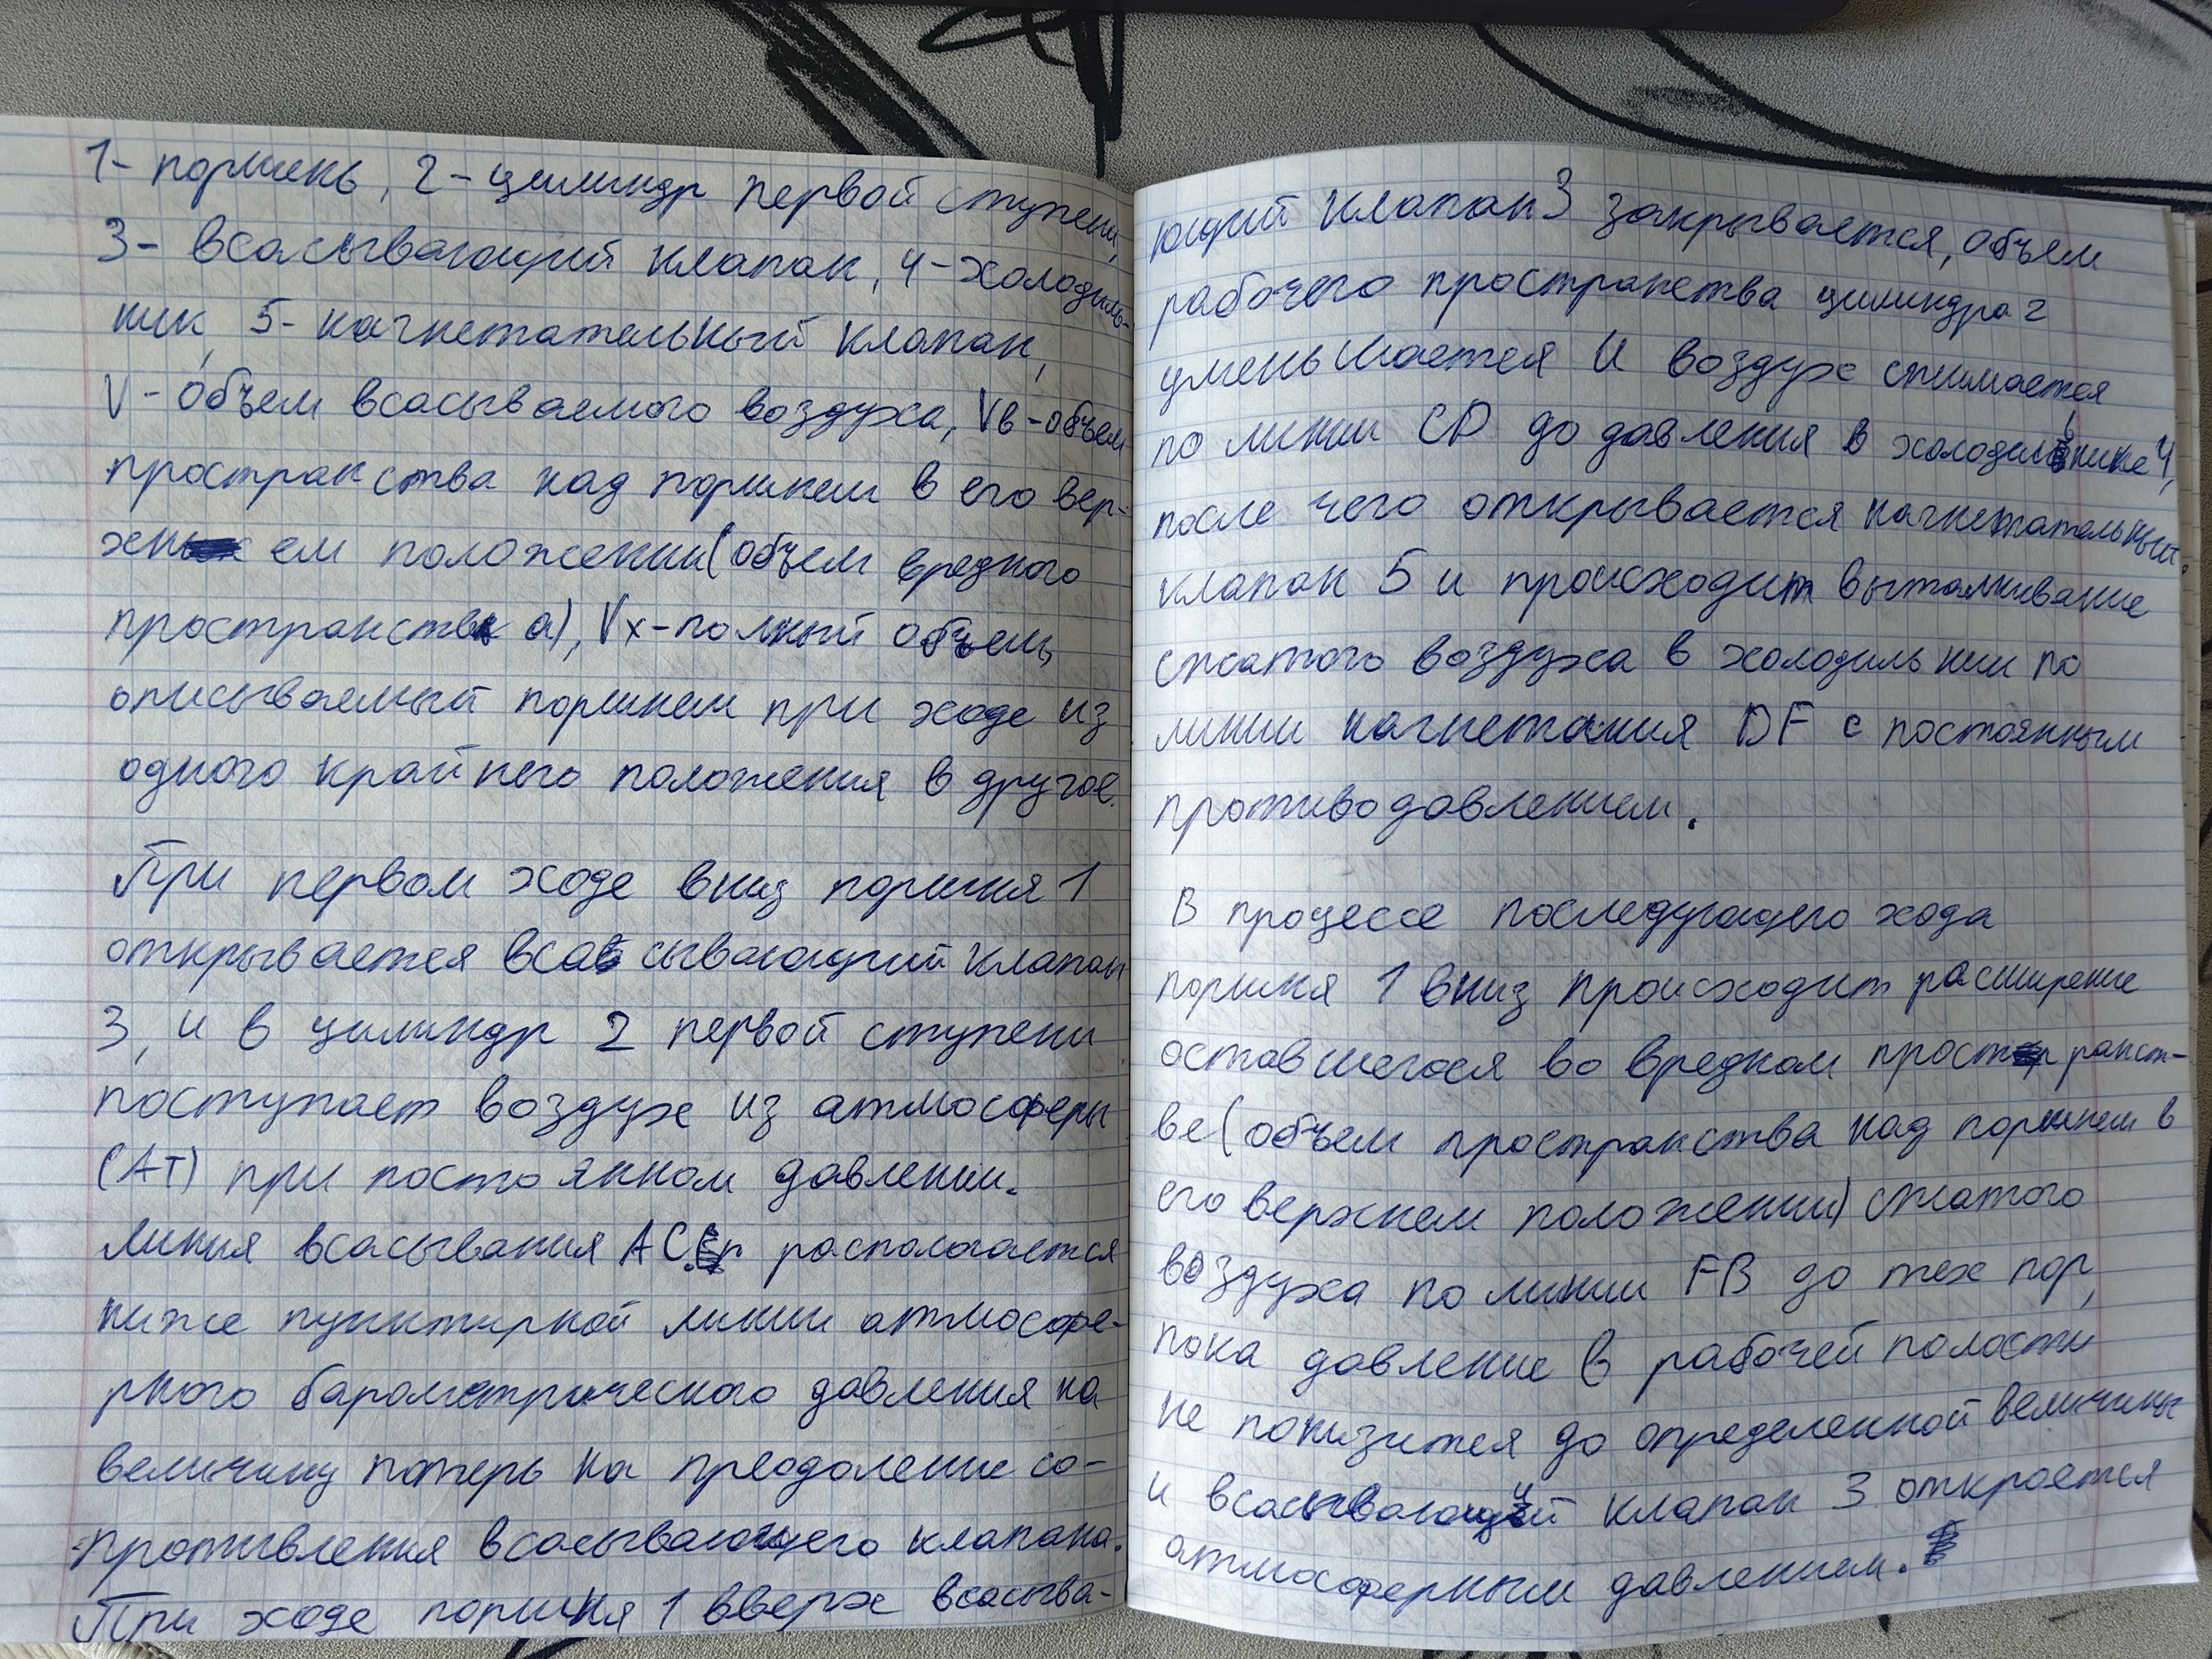 1- поршень, 2-цилиндр первой ступени,
3- всасывающий клапан, 4-холодиль-
ник, 5- нагнетательный клапан,
V-объем всасываемого воздуха, Vв-объем
пространства над поршнем в его вер-
хнем положении(объем вредного
пространств а), Vx-полный объем,
описываемый поршнем при ходе из
одного крайнего положения в другое.
При первом ходе вниз поршня 1
открывается всасывающий клапан
3, и в цилиндр 2 первой ступени
поступает воздух из атмосферы
(АТ) при постоянном давлении.
Линия всасывания АС располагается
ниже пунктирной линии атмосфе-
рного барометрического давления на
величину потерь на преодоление со-
противления всасывающего клапана.
При ходе поршня 1 вверх всасыва-
ющий клапан 3 закрывается, объем
рабочего пространства цилиндра 2
уменьшается и воздух сжимается
по линии CD до давления в холодильнике 4,
после чего открывается нагнетательный
клапан 5 и происходит выталкивание
сжатого воздуха в холодильник по
линии нагнетания DF с постоянным
противодавлением.
В процессе последующего хода
поршня 1 вниз происходит расширение
оставшегося во вредном пространст-
ве(объем пространства над поршнем в
его верхнем положении) сжатого
воздуха по линии FB до тех пор,
пока давление в рабочей полости
не понизится до определенной величины
и всасывающий клапан 3 откроется
атмосферным давлением.